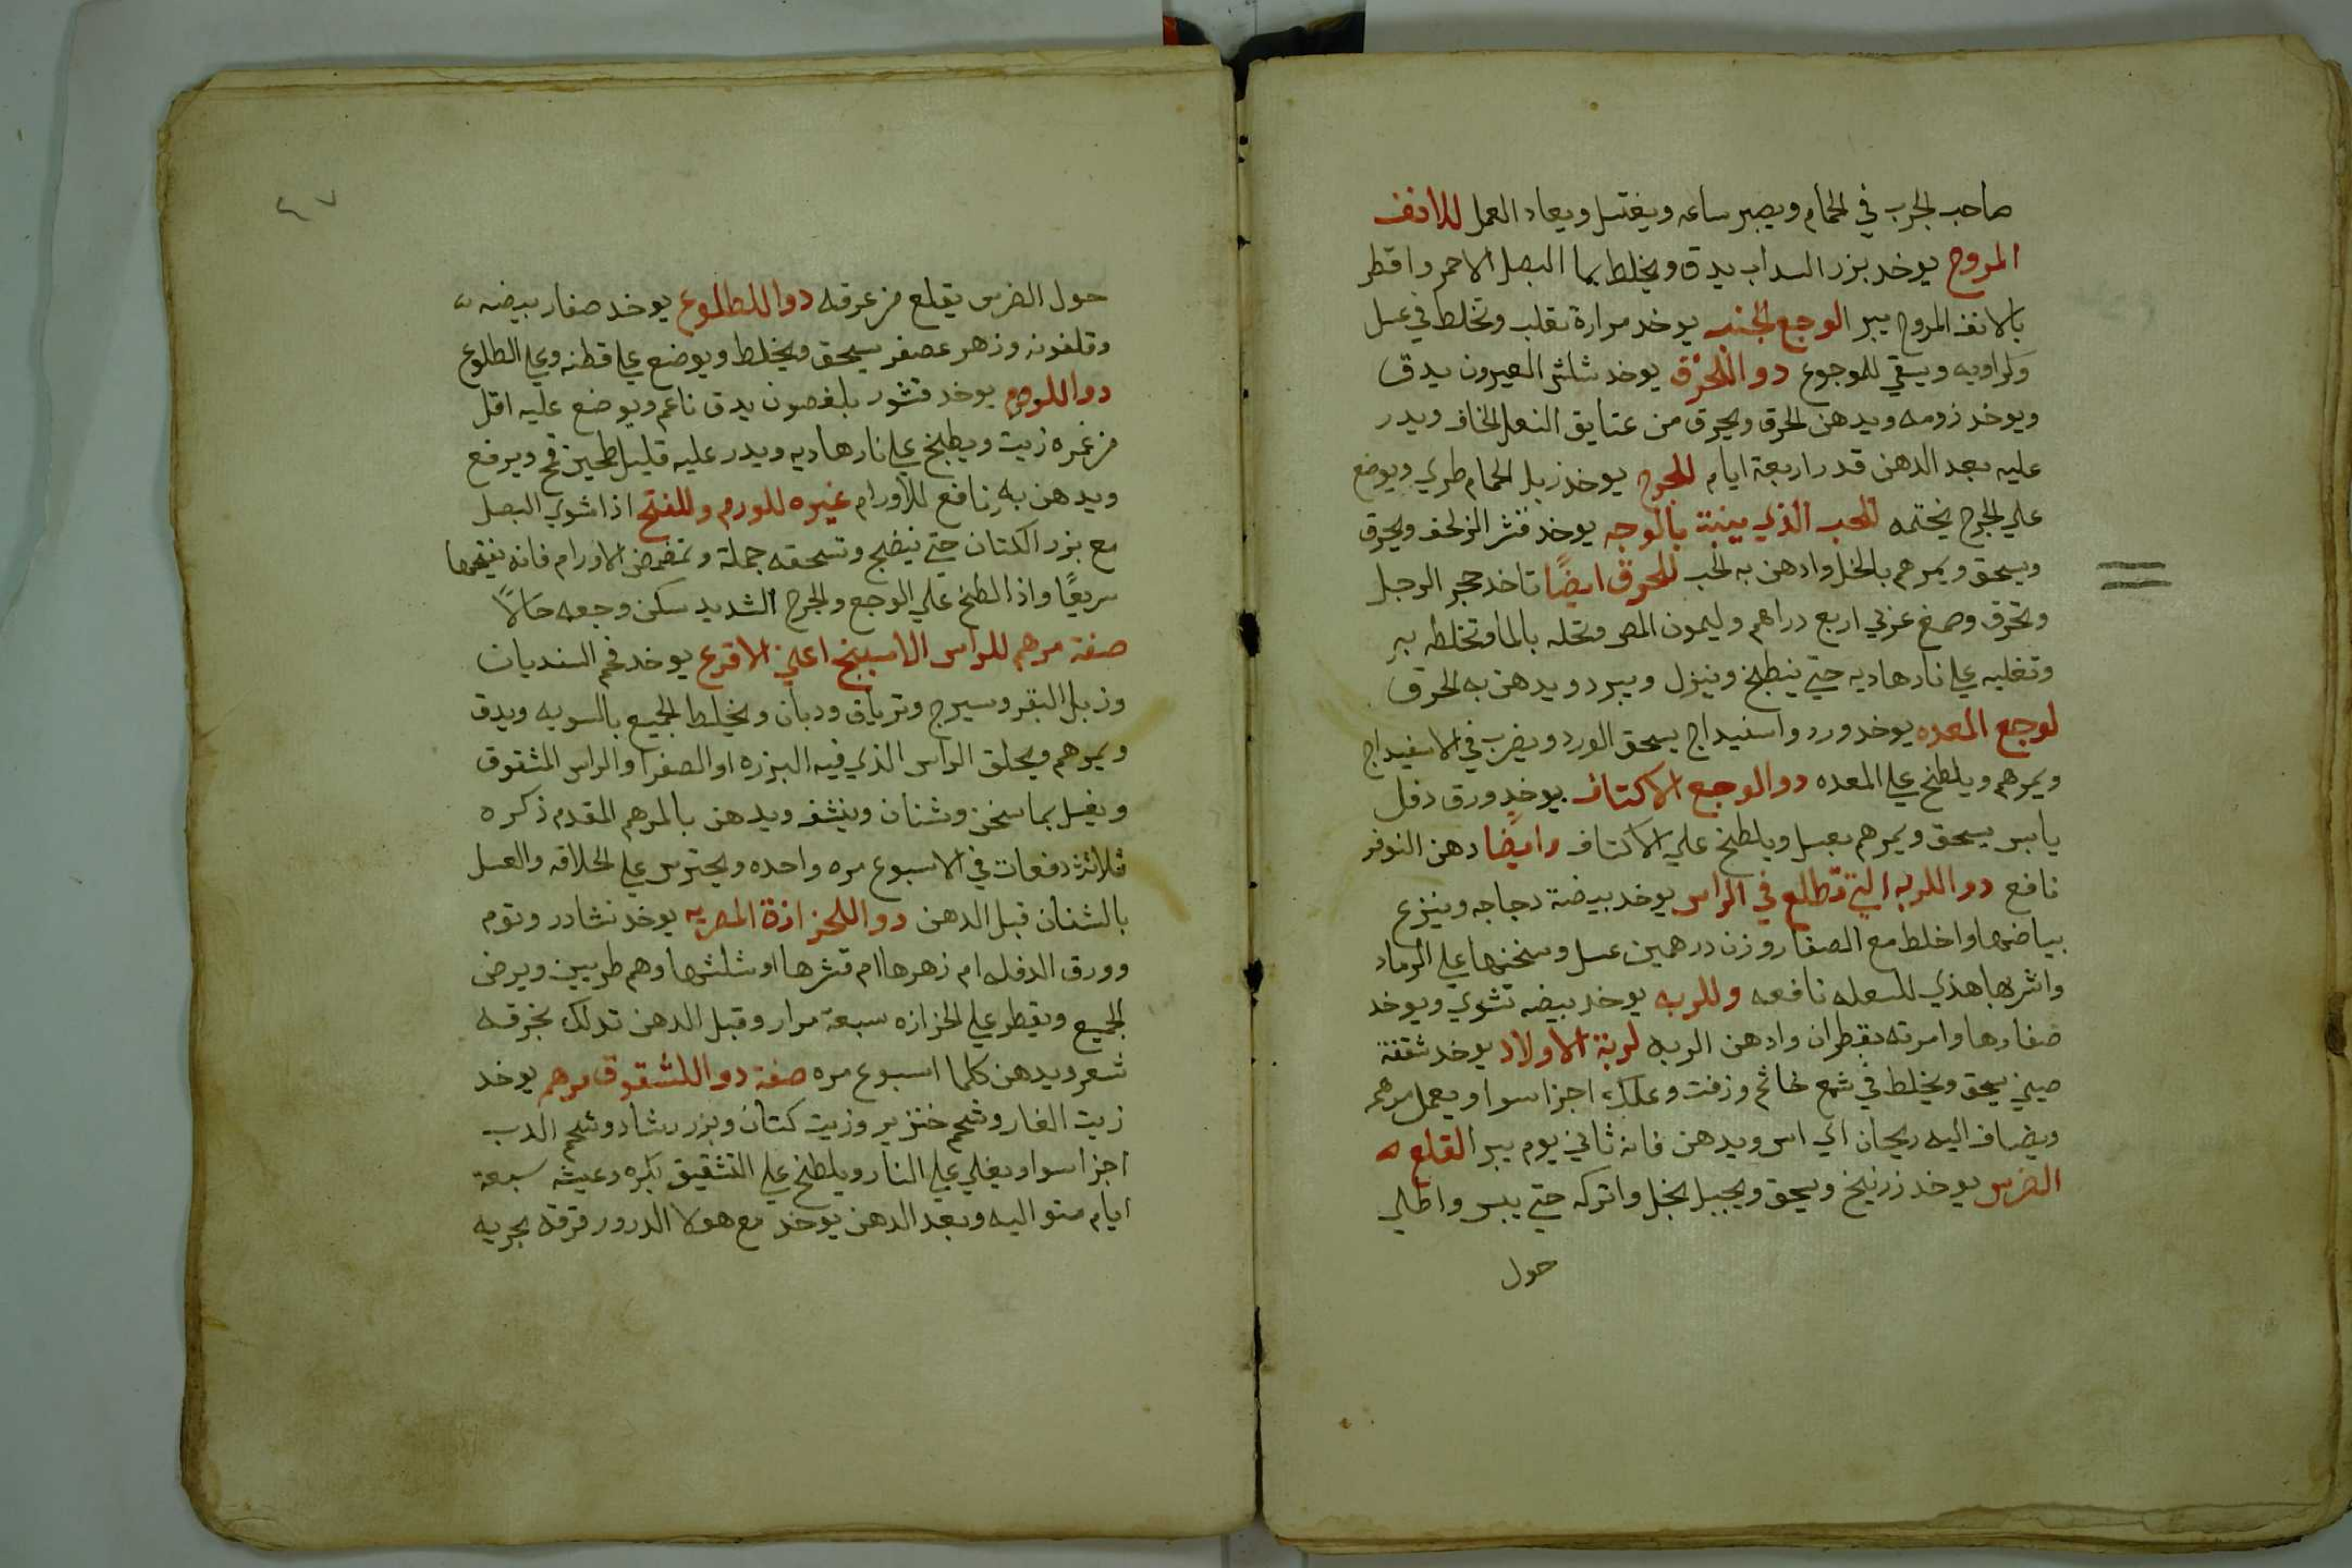 صاحب الجرب في الحمام ويصبر ساعه ويغتسل ويعاد العمل للانف
المروح يوخد بزر السداب يدق ويخلط بما البصل الاحمر واقطر
بالانف المروح يبر الوجع الجنب يوخد مرارة تقلب وتخلط في عسل
وكراويه ويسقي للموجوع دوا للحرق يوخد شلش العيرون يدق
ويوخد زومه ويدهن الحرق ويحرق من عتايق النعل الخاف ويدر
عليه بعد الدهن قدر اربعة ايام للجرح يوخد زبل الحمام طري ويوضع
علي الجرح يختمه للحب الذي ينبت بالوجه يوخد قشر الزلحف ويحرق
ويسحق ويمرهم بالخل وادهن به الحب للحرق ايضًا تاخد حجر الرجل
وتحرق وصمغ عربي اربع دراهم وليمون المص وتحله بالما وتخلطه به
وتغليه علي نار هاديه حتي ينطبخ وينزل ويبرد ويدهن به الحرق
لوجع المعده يوخد ورد واسفيداج يسحق الورد ويضرب في الاسفيداج
ويمرهم ويلطخ علي المعده دوا لوجع الاكتاف يوخد ورق دفل
يابس يسحق ويمرهم بعسل ويلطخ علي الاكتاف وايضًا دهن النوفر
نافع دوا للربه التي تطلع في الراس يوخد بيضة دجاجه وينزع
بياضها واخلط مع الصفار وزن درهمين عسل وسخنها علي الرماد
واشربها هذي للسعله نافعه وللربه يوخد بيضه تشوي ويوخد
صفارها وامرته بقطران وادهن الربه لربة الاولاد يوخد شقفة
صيني يسحق ويخلط في شمع خاتم وزفت وعلك اجزا سوا ويعمل مرهم
ويضاف اليه ريحان اي اس ويدهن فانه ثاني يوم يبر القلع
الضرس يوخد زرنيخ ويسحق ويجبل بخل واتركه حتي يبس واطلي
حول
٤٧
حول الضرس يقلع من عرقه دوا للطلوع يوخد صفار بيضه
وقلفونه وزهر عصفر يسحق ويخلط ويوضع علي قطنه وعلي الطلوع
دوا للورم يوخد قشور بلغصون يدق ناعم ويوضع عليه اقل
من غمره زيت ويطبخ علي نار هاديه ويدر عليه قليل طحين قمح ويرفع
ويدهن به نافع للاورام غيره للورم وللفتح اذا شوي البصل
مع بزر الكتان حتي ينضج وتسحقه جملة وتضمض الاورام فانه ينقيها
سريعًا واذا لطخ علي الوجع والجرح الشديد سكن وجعه حالًا
صفة مرهم للراس الاسبنج اعني الاقرع يوخد فحم السنديان
وزبل البقر وسيرج وترياق ودبان ويخلط الجميع بالسويه ويدق
ويمرهم ويحلق الراس الذي فيه البزره او الصفرا والراس المشقوق
ويغسل بما سخن وشنان وينشف ويدهن بالمرهم المقدم ذكره
ثلاثة دفعات في الاسبوع مره واحده ويحترس علي الحلاقه والغسل
بالشنان قبل الدهن دوا للحزازة المصريه يوخد نشادر وتوم
وورق الدفله ام زهرها ام قشرها او شلشها وهم طريين ويرض
الجميع ويقطر علي الحزازه سبعة مرار وقبل الدهن تدلك بخرقه
شعر ويدهن كلما اسبوع مره صفة دوا للشقوق مرهم يوخد
زيت الغار وشحم خنزير وزيت كتان وبزر رشاد وشحم الدب
اجزا سوا ويغلي علي النار ويلطخ علي التشقيق بكره وعيشه سبعة
ايام متواليه وبعد الدهن يوخد مع هولا الدرور قرقة بحريه